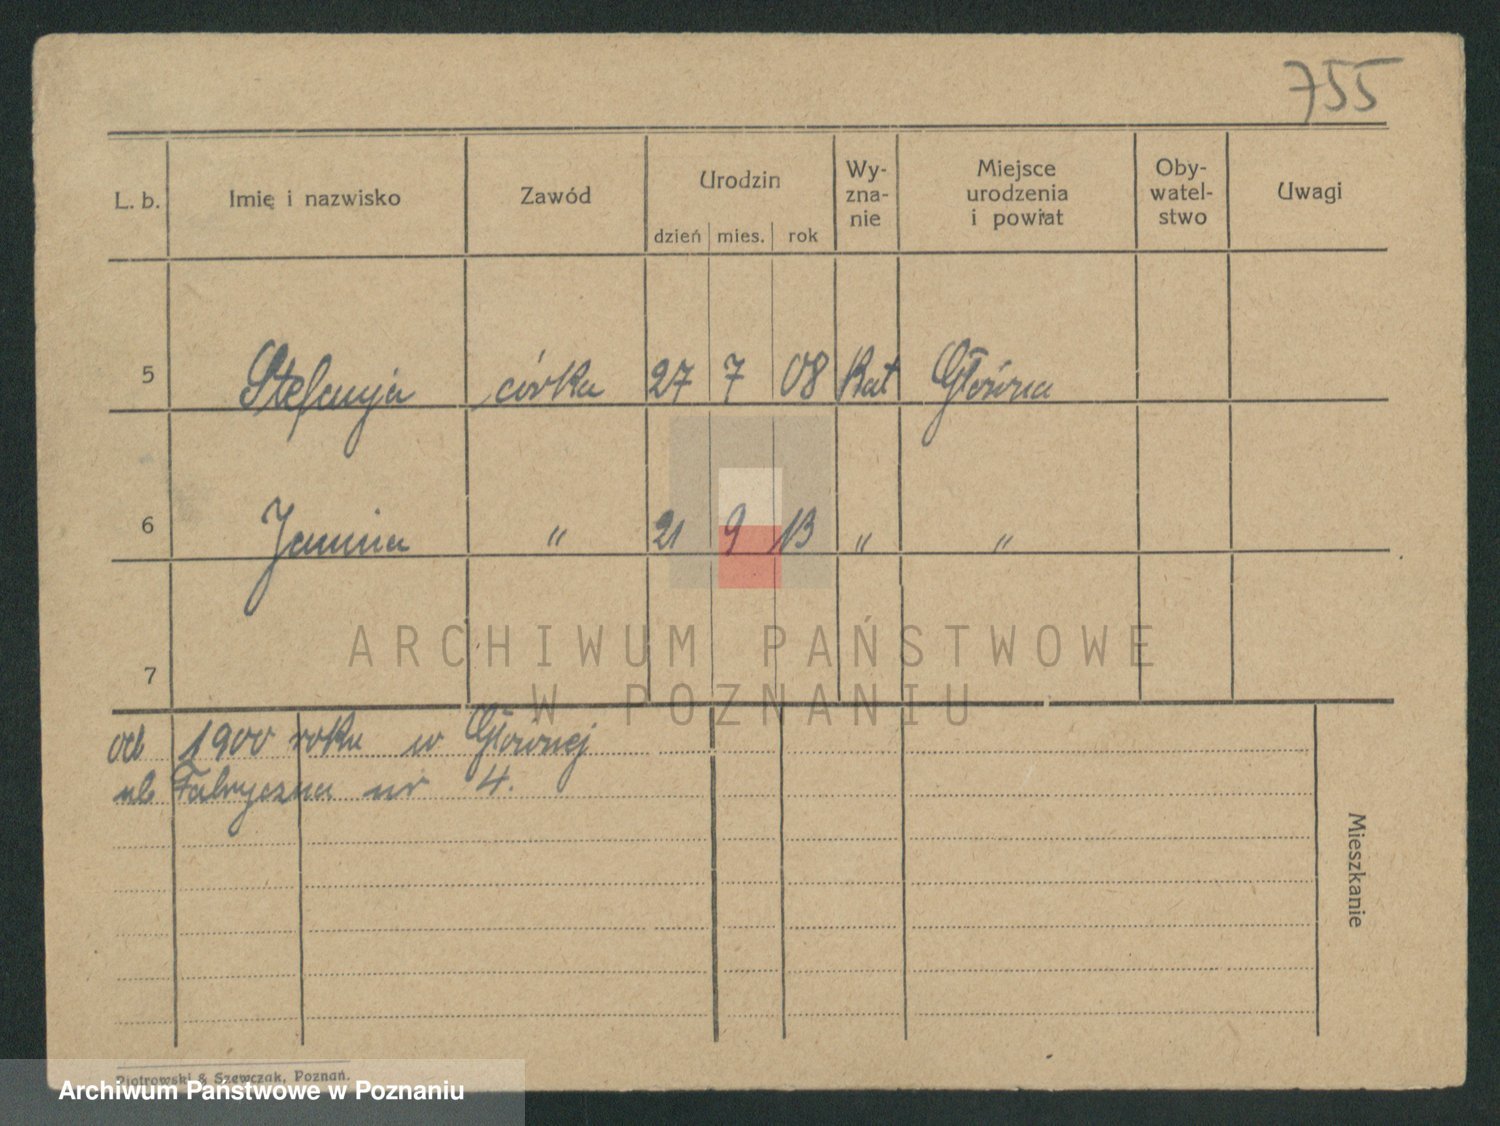 755
L. b. Imię i nazwisko Zawód Urodzin dzień mies. rok Wy-zna-nie Miejsce urodzenia i powiat Oby-watel-stwo Uwagi
5 Stefanja córka 27 7 08 Kat Główna
6 Janina " 21 9 13 " "
ARCHIWUM PAŃSTWOWE
7
W POZNANIU
od 1900 roku w Głównej
ul. Fabryczna nr 4.
Mieszkanie
Piotrowski & Szewczak, Poznań.
Archiwum Państwowe w Poznaniu